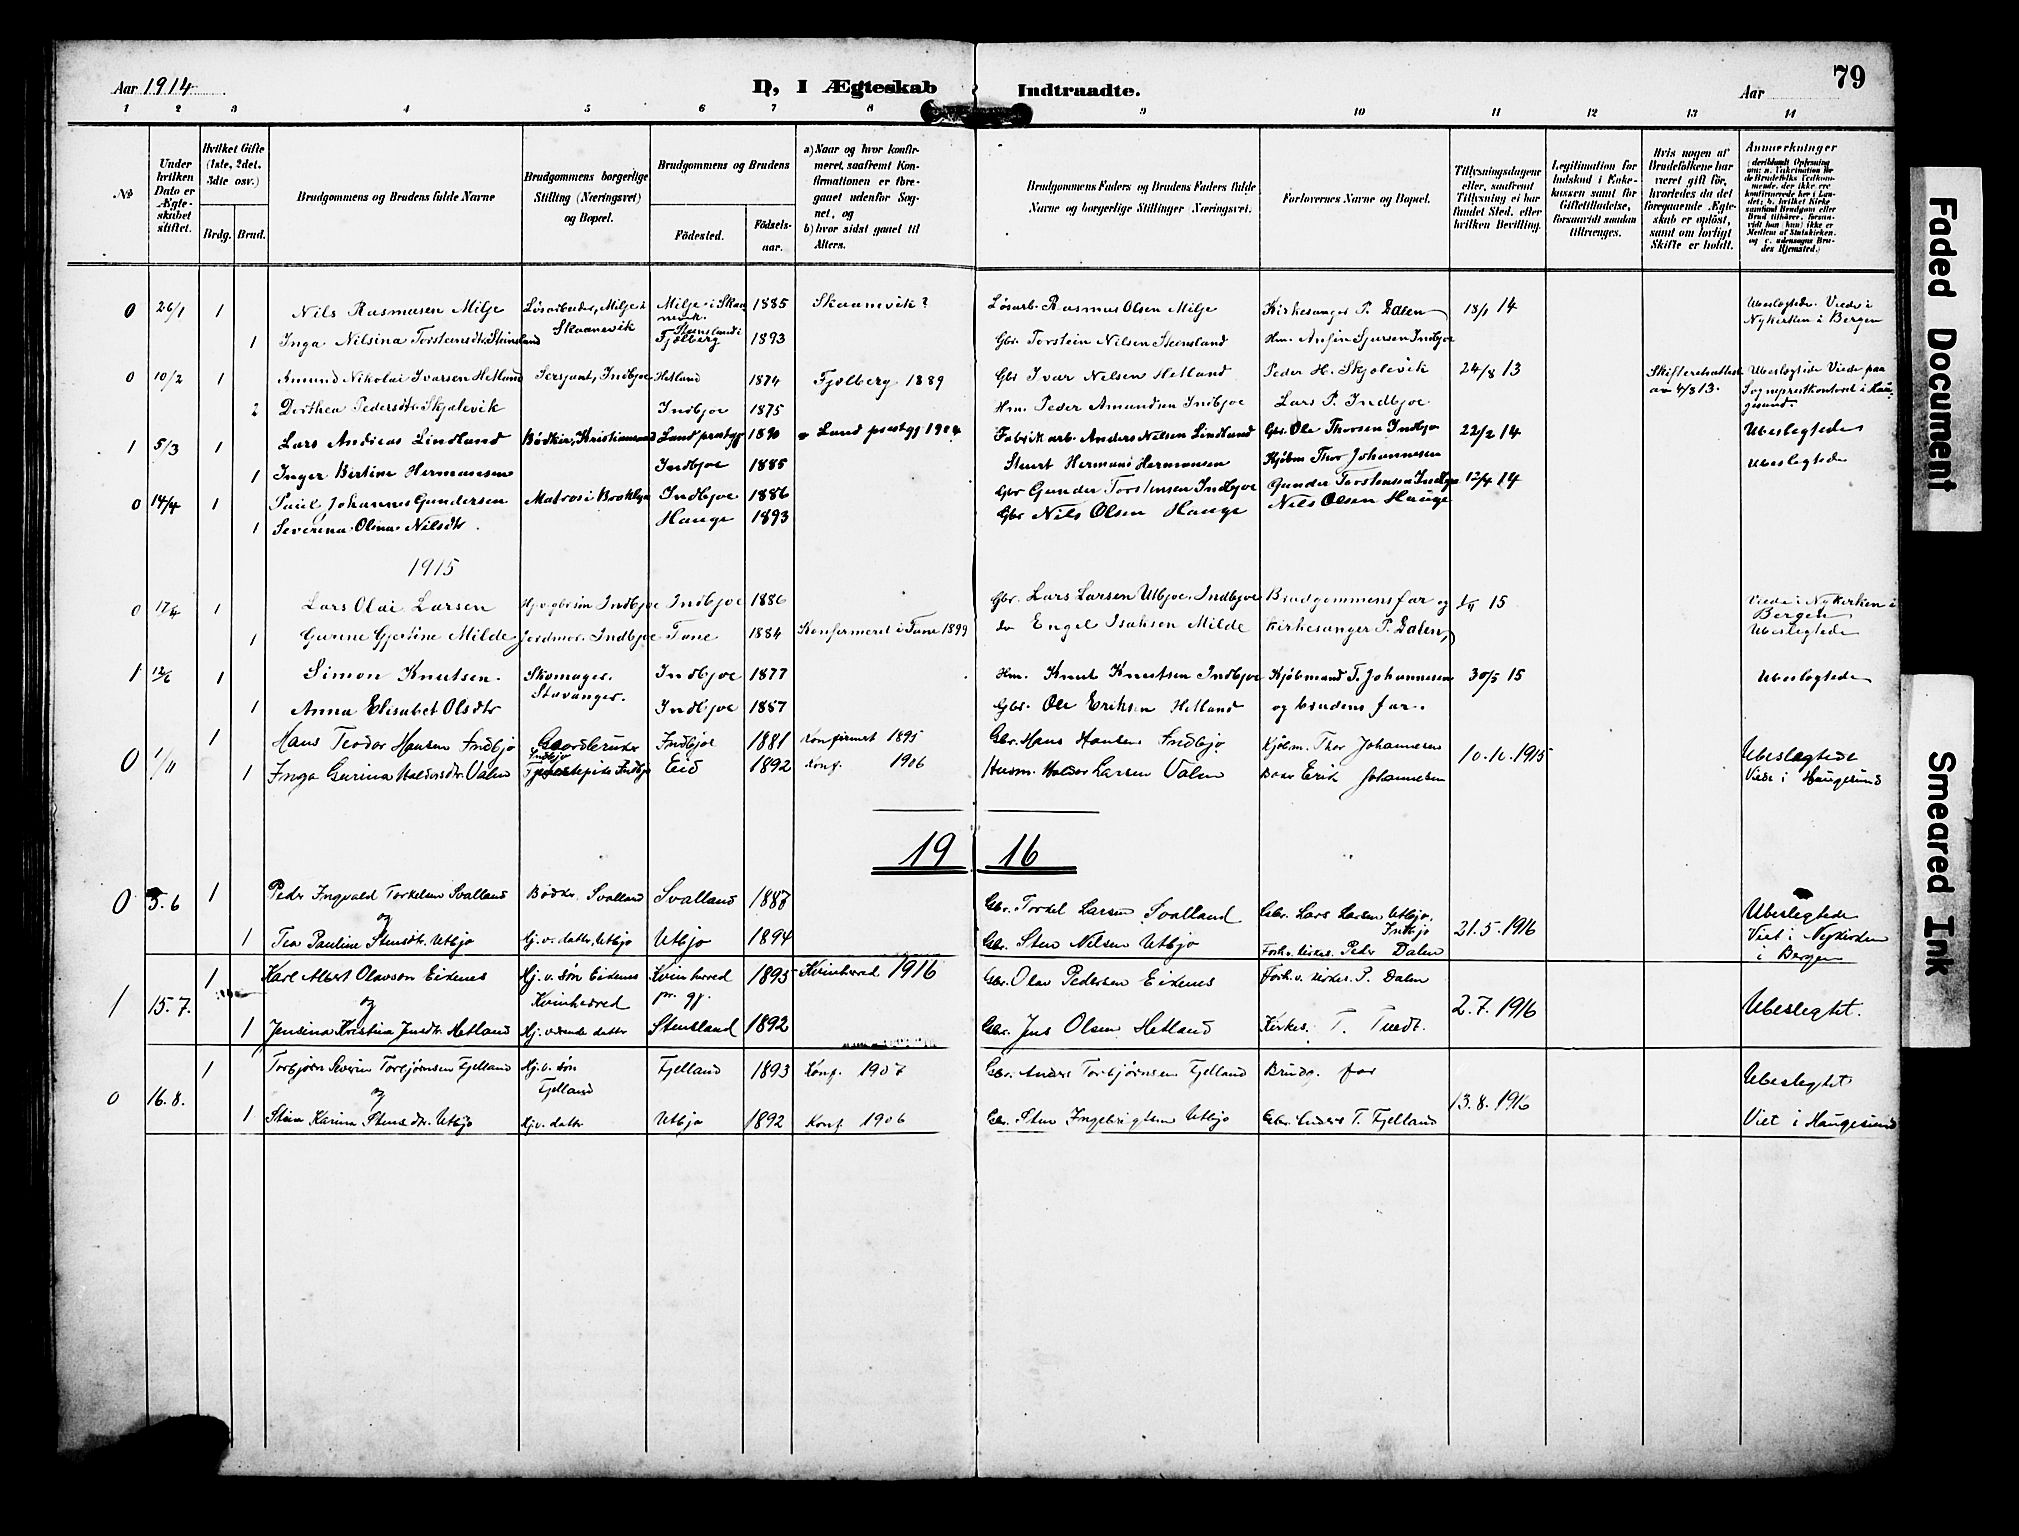 79
Aar 1914
D, I Ægteskab Indtraadte.
Aar
1 2 3 4 5 6 7 8 9 10 11 12 13 14
№
Under hvilken Dato er Ægteskabet stiftet.
Hvilket Gifte (1ste, 2det, 3die osv.)
Brdg. Brud.
Brudgommens og Brudens fulde Navne
Brudgommens borgerlige Stilling (Næringsvei) og Bopæl.
Brudgommens og Brudens
Födested. Födsels-aar.
a) Naar og hvor konfirmeret, saafremt Konfirmationen er foregaaet udenfor Sognet, og
b) hvor sidst gaaet til Alters.
Brudgommens Faders og Brudens Faders fulde Navne og borgerlige Stillinger (Næringsvei.
Forlovernes Navne og Bopæl.
Tillysningsdagene eller, saafremt Tillysning ei har fundet Sted, efter hvilken Bevilling.
Legitimation for Indskud i Enkekassen samt for Giftetilladelse, forsaavidt saadan tiltrænges.
Hvis nogen af Brudefolkene har været gift før, hvorledes da det foregaaende Ægteskab er opløst, samt om lovligt Skifte er holdt.
Anmerkninger
0 26/1 1 Nils Rasmusen Milje Løsarbeider, Milje i Skaanevik Milje i Skaanevik 1885 Skaanevik? Løsarb. Rasmus Olsen Milje Kirkesanger P. Dalen 18/1 14 Ubeslegtede. Viede i Nykirken i Bergen
1 Inga Nilsina Torsteinsdtr. Steinsland Steinsland i Fjelberg 1893 Gbr. Torstein Nilsen Steinsland Hm. Ansin Sjursen Indbjoe
0 10/2 1 Amund Nikolai Ivarsen Hetland Sersjant, Indbjoe Hetland 1874 Fjelberg 1889 Gbr Ivar Nelsen Hetland Peder H. Skjolevik 24/8 13 Skifteretsattest av 4/8 13. Ubeslegtede Viede paa Sogneprestkontoret i Haugesund.
2 Dorthea Pedersdtr. Skjolevik Indbjoe 1875 Hm. Peder Amundsen Indbjoe Lars P. Indbjoe
1 5/3 1 Lars Andreas Lindland Bødker, Kristianssand Lund prestgj 1890 Lund prestgj 1904 Fabrikarb. Anders Nilsen Lindland Gbr. Ole Thorsen Indbjo 22/2 14 Ubeslegtede
1 Inger Bertine Hermansen Indbjoe 1885 Stuert Hermans Hermansen Kjøbm Thor Johannesen Ubeslegtede
0 14/4 1 Paul Johannes Gundersen Matros i Brooklyn Indbjoe 1886 Gbr Gunder Torstensen Indbjoe Gunder Torstensen Indbjo 12/4 14
1 Severina Olina Nilsdtr. Hauge 1893 Gbr Nils Olsen Hauge Nils Olsen Hauge
1915
0 17/4 1 Lars Olai Larsen Indbjoe Indbjoe 1886 Gbr. Lars Larsen Utbjoe. Indbjoe Brudgommens far og 15 Viede i Nykirken i Bergen
1 Gurine Gjertine Milde Jordmor. Indbjoe Fane 1884 Konfirmeret i Fane 1899 do Engel Isaksen Milde Kirkesanger P. Dalen Ubeslegtede
1 12/6 1 Simon Knutsen. Skomager. Stavanger. Indbjoe 1877 Hm. Knut Knutsen Indbjoe Kjøbmand T. Johannesen 30/5 15 Ubeslegtede
1 Anna Elisabet Olsdtr Indbjoe 1887 Gbr. Ole Eriksen Hetland og brudens far.
0 1/11 1 Hans Teodor Hansen Indbjo Gaardbruker Indbjo Indbjoe 1881 Konfirmert 1895 Gbr. Hans Hansen Indbjo Kjøbm. Thor Johannesen 10.10.1915 Ubeslegtede
1 Inga Gurina Haldorsdtr. Valen Indbjo Eid 1892 Konf. 1906 Husm. Haldor Larsen Valen Erik Johannesen Viede i Haugesund
1916
0 5.6 1 Peder Ingvald Torkelsen Svalland Bødker. Svalland Svalland 1888 Gbr. Torkel Larsen Svalland Gbr. Lars Larsen Utbjo. Innbjo 21.5.1916 Ubeslegtede
og
1 Tea Pauline Stensdtr. Utbjo Hj.v. datter, Utbjo Utbjo 1894 Gbr. Sten Nilsen Utbjo Forh.v. kirkes. Peder Dalen Viet i Nykirken i Bergen
1 15.7. 1 Karl Albert Olavson Eidenes Hj. v. søn Eidenes Kvinherred Kvinherred pr. gj. 1895 Kvinherred 1916 Gbr. Olav Pedersen Eidenes Forh.v. kirkes. P. Dalen 2.7.1916 Ubeslegtet.
og
1 Jensina Kristina Jensdtr. Hetland Hj. værende datter Stensland 1892 Gbr. Jens Olsen Hetland Kirkes. T. Tvedt.
0 16.8. 1 Torbjørn Severin Torbjørnsen Fjelland Hj. v. søn Fjelland Fjelland 1893 Konf. 1907 Gbr. Anders Torbjørnsen Fjelland Brudg. far 13.8.1916 Ubeslegtet
og
1 Stina Karina Stensdtr. Utbjo Hj.v. datter Utbjo 1892 Konf 1906 Gbr. Sten Ingebrigtsen Utbjo Gbr. Anders T. Fjelland Viet i Haugesund
Faded Document
Smeared Ink